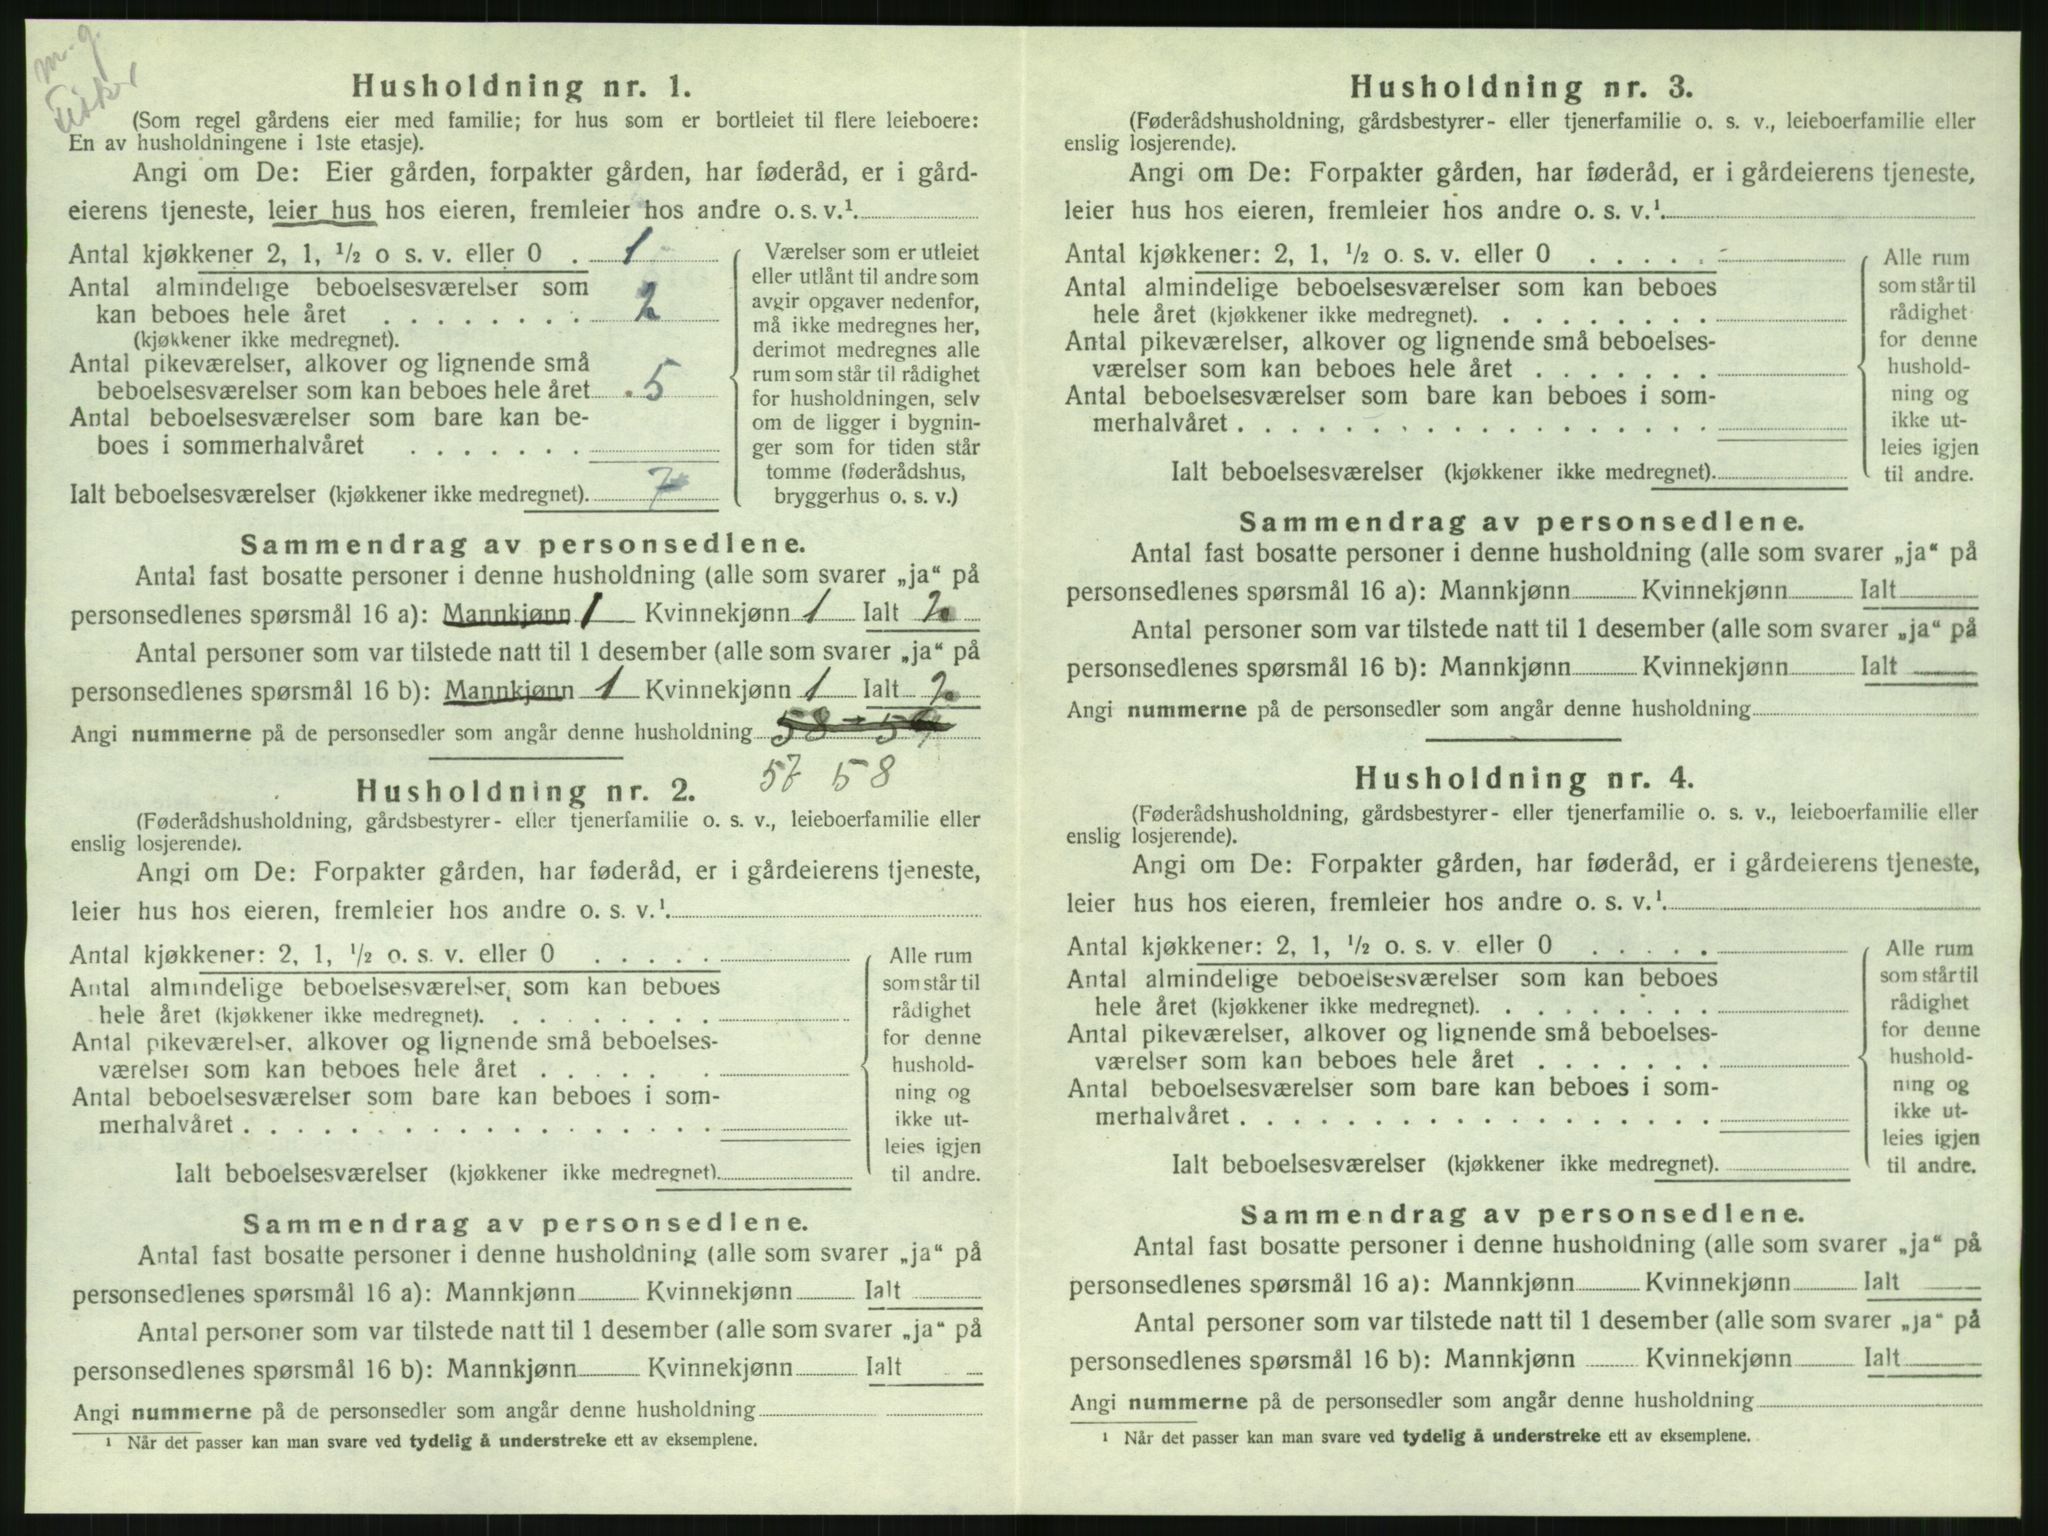 m. g.
Fisker
Husholdning nr. 1.
(Som regel gårdens eier med familie; for hus som er bortleiet til flere leieboere:
En av husholdningene i 1ste etasje).
Angi om De: Eier gården, forpakter gården, har føderåd, er i gård-
eierens tjeneste, leier hus hos eieren, fremleier hos andre o. s. v.¹.
Antal kjøkkener 2, 1, ½ o s. v. eller 0 . 1
Antal almindelige beboelsesværelser som
kan beboes hele året . . . . . . . . 2
(kjøkkener ikke medregnet).
Antal pikeværelser, alkover og lignende små
beboelsesværelser som kan beboes hele året . 5
Antal beboelsesværelser som bare kan be-
boes i sommerhalvåret . . . . . . .
Ialt beboelsesværelser (kjøkkener ikke medregnet). 7
Værelser som er utleiet
eller utlånt til andre som
avgir opgaver nedenfor,
må ikke medregnes her,
derimot medregnes alle
rum som står til rådighet
for husholdningen, selv
om de ligger i bygnin-
ger som for tiden står
tomme (føderådshus,
bryggerhus o. s. v.)
Sammendrag av personsedlene.
Antal fast bosatte personer i denne husholdning (alle som svarer „ja“ på
personsedlenes spørsmål 16 a): Mannkjønn 1 Kvinnekjønn 1 Ialt 2
Antal personer som var tilstede natt til 1 desember (alle som svarer „ja“ på
personsedlenes spørsmål 16 b): Mannkjønn 1 Kvinnekjønn 1 Ialt 2
Angi nummerne på de personsedler som angår denne husholdning 58 - 59
57 58
Husholdning nr. 2.
(Føderådshusholdning, gårdsbestyrer- eller tjenerfamilie o. s. v., leieboerfamilie eller
enslig losjerende).
Angi om De: Forpakter gården, har føderåd, er i gårdeierens tjeneste,
leier hus hos eieren, fremleier hos andre o. s. v.¹.
Antal kjøkkener: 2, 1, ½ o. s. v. eller 0 . . . . .
Antal almindelige beboelsesværelser, som kan beboes
hele året (kjøkkener ikke medregnet). . . . . . . . .
Antal pikeværelser, alkover og lignende små beboelses-
værelser som kan beboes hele året . . . . . . .
Antal beboelsesværelser som bare kan beboes i som-
merhalvåret . . . . . . . . . . . . . . . . . .
Ialt beboelsesværelser (kjøkkener ikke medregnet).
Alle rum
som står til
rådighet
for denne
hushold-
ning og
ikke ut-
leies igjen
til andre.
Sammendrag av personsedlene.
Antal fast bosatte personer i denne husholdning (alle som svarer „ja“ på
personsedlenes spørsmål 16 a): Mannkjønn Kvinnekjønn Ialt
Antal personer som var tilstede natt til 1 desember (alle som svarer „ja“ på
personsedlenes spørsmål 16 b): Mannkjønn Kvinnekjønn Ialt
Angi nummerne på de personsedler som angår denne husholdning
¹ Når det passer kan man svare ved tydelig å understreke ett av eksemplene.
Husholdning nr. 3.
(Føderådshusholdning, gårdsbestyrer- eller tjenerfamilie o. s. v., leieboerfamilie eller
enslig losjerende).
Angi om De: Forpakter gården, har føderåd, er i gårdeierens tjeneste,
leier hus hos eieren, fremleier hos andre o. s. v.¹.
Antal kjøkkener: 2, 1, ½ o. s. v. eller 0 . . . . .
Antal almindelige beboelsesværelser som kan beboes
hele året (kjøkkener ikke medregnet). . . . . . . . .
Antal pikeværelser, alkover og lignende små beboelses-
værelser som kan beboes hele året . . . . . . .
Antal beboelsesværelser som bare kan beboes i som-
merhalvåret . . . . . . . . . . . . . . . . . .
Ialt beboelsesværelser (kjøkkener ikke medregnet).
Alle rum
som står til
rådighet
for denne
hushold-
ning og
ikke ut-
leies igjen
til andre.
Sammendrag av personsedlene.
Antal fast bosatte personer i denne husholdning (alle som svarer „ja“ på
personsedlenes spørsmål 16 a): Mannkjønn Kvinnekjønn Ialt
Antal personer som var tilstede natt til 1 desember (alle som svarer „ja“ på
personsedlenes spørsmål 16 b): Mannkjønn Kvinnekjønn Ialt
Angi nummerne på de personsedler som angår denne husholdning
Husholdning nr. 4.
(Føderådshusholdning, gårdsbestyrer- eller tjenerfamilie o. s. v., leieboerfamilie eller
enslig losjerende).
Angi om De: Forpakter gården, har føderåd, er i gårdeierens tjeneste,
leier hus hos eieren, fremleier hos andre o. s. v.¹.
Antal kjøkkener: 2, 1, ½ o. s. v. eller 0 . . . . .
Antal almindelige beboelsesværelser som kan beboes
hele året (kjøkkener ikke medregnet). . . . . . . . .
Antal pikeværelser, alkover og lignende små beboelses-
værelser som kan beboes hele året . . . . . . .
Antal beboelsesværelser som bare kan beboes i som-
merhalvåret . . . . . . . . . . . . . . . . . .
Ialt beboelsesværelser (kjøkkener ikke medregnet).
Alle rum
som står til
rådighet
for denne
hushold-
ning og
ikke ut-
leies igjen
til andre.
Sammendrag av personsedlene.
Antal fast bosatte personer i denne husholdning (alle som svarer „ja“ på
personsedlenes spørsmål 16 a): Mannkjønn Kvinnekjønn Ialt
Antal personer som var tilstede natt til 1 desember (alle som svarer „ja“ på
personsedlenes spørsmål 16 b): Mannkjønn Kvinnekjønn Ialt
Angi nummerne på de personsedler som angår denne husholdning
¹ Når det passer kan man svare ved tydelig å understreke ett av eksemplene.